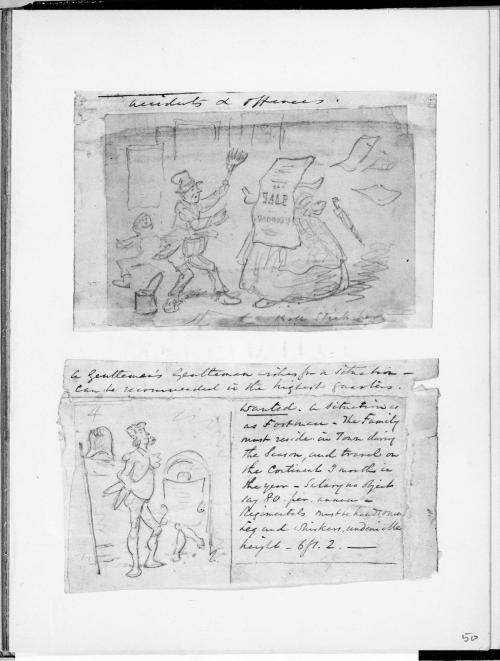 Accidents & Offences.
SALE
A Gentleman's Gentleman wishes for a situation -
can be recommended in the highest quarters.
4
Wanted. A Situation as
as Footman - The Family
must reside in Town during
the Season, and travel on
the Continent 3 months in
the year - Salary no object
say 80 per. annum -
Regimentals must be handsome
Leg and Whiskers, undeniable
height - 6ft. 2. —
50